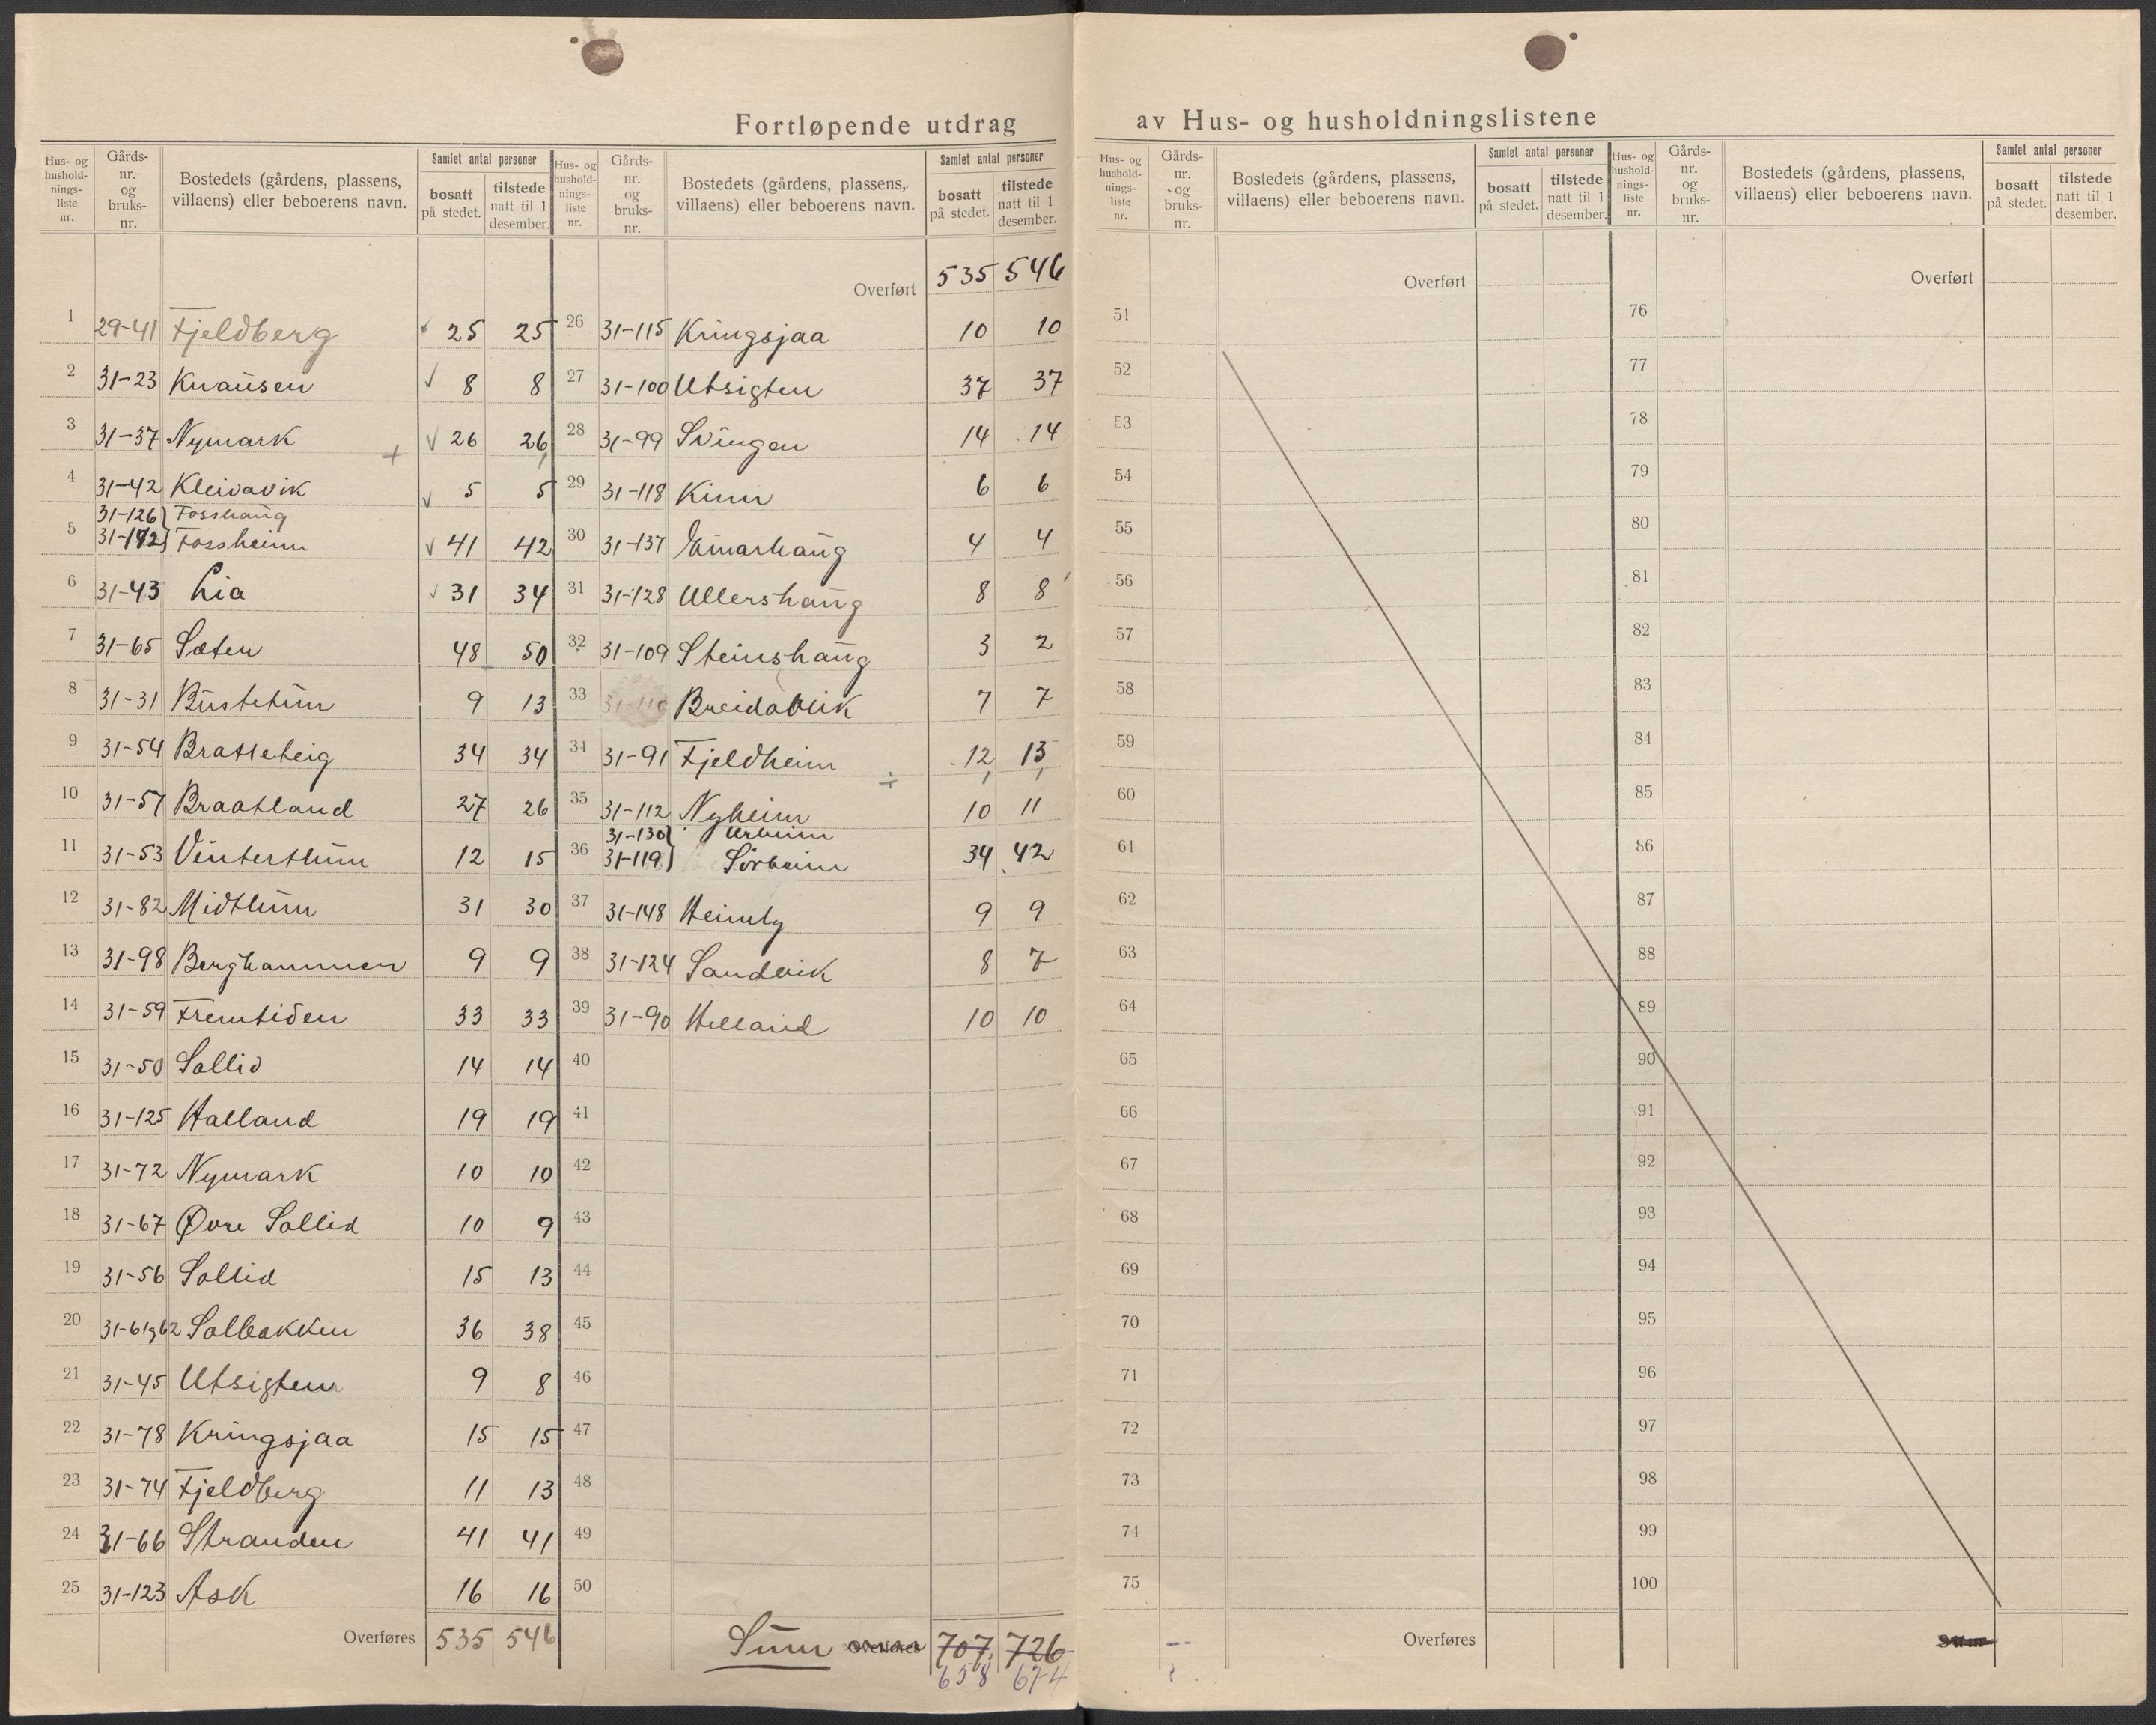 Fortløpende utdrag av Hus- og husholdningslistene
Hus- og husholdnings- liste nr. | Gårds- nr. og bruks- nr. | Bostedets (gårdens, plassens, villaens) eller beboerens navn. | Samlet antal personer | bosatt på stedet. | tilstede natt til 1 desember.
1 29-41 Fjeldberg 25 25
2 31-23 Knausen 8 8
3 31-37 Nymark 26 26
4 31-42 Kleivavik 5 5
31-126 Fosshaug
5 31-142 Fossheim 41 42
6 31-43 Lia 31 34
7 31-65 Sæten 48 50
8 31-31 Bustetun 9 13
9 31-54 Bratteteig 34 34
10 31-57 Braatland 27 26
11 31-53 Vintertun 12 15
12 31-82 Midttun 31 30
13 31-98 Berghammer 9 9
14 31-59 Fremtiden 33 33
15 31-50 Sollid 14 14
16 31-125 Halland 19 19
17 31-72 Nymark 10 10
18 31-67 Øvre Sollid 10 9
19 31-56 Sollid 15 13
20 31-61 og 62 Solbakken 36 38
21 31-45 Utsigten 9 8
22 31-78 Kringsjaa 15 15
23 31-74 Fjeldberg 11 13
24 31-66 Stranden 41 41
25 31-123 Ask 16 16
Overføres 535 546
Hus- og husholdnings- liste nr. | Gårds- nr. og bruks- nr. | Bostedets (gårdens, plassens, villaens) eller beboerens navn. | Samlet antal personer | bosatt på stedet. | tilstede natt til 1 desember.
Overført 535 546
26 31-115 Kringsjaa 10 10
27 31-100 Utsigten 37 37
28 31-99 Svingen 14 14
29 31-118 Kinn 6 6
30 31-137 Einarhaug 4 4
31 31-128 Ullershaug 8 8
32 31-109 Steinshaug 3 2
33 31-110 Breidablik 7 7
34 31-91 Fjeldheim 12 13
35 31-112 Nyheim 10 11
31-130 Urheim
36 31-119 Sörheim 34 42
37 31-148 Heimly 9 9
38 31-124 Sandvik 8 7
39 31-90 Helland 10 10
40
41
42
43
44
45
46
47
48
49
50
Sum Overføres 707 726
658 674
Hus- og husholdnings- liste nr. | Gårds- nr. og bruks- nr. | Bostedets (gårdens, plassens, villaens) eller beboerens navn. | Samlet antal personer | bosatt på stedet. | tilstede natt til 1 desember.
Overført
51
52
53
54
55
56
57
58
59
60
61
62
63
64
65
66
67
68
69
70
71
72
73
74
75
Overføres
Hus- og husholdnings- liste nr. | Gårds- nr. og bruks- nr. | Bostedets (gårdens, plassens, villaens) eller beboerens navn. | Samlet antal personer | bosatt på stedet. | tilstede natt til 1 desember.
Overført
76
77
78
79
80
81
82
83
84
85
86
87
88
89
90
91
92
93
94
95
96
97
98
99
100
Sum